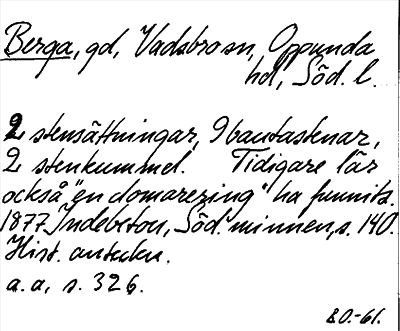 Berga, gd, Vadsbro sn, Oppunda
hd, Söd. l.
2 stensättningar, 9 bautastenar,
2 stenkummel. Tidigare lär
också "en domarering" ha funnits.
1877 Indebetou, Söd. minnen, s. 140.
Hist. anteckn.
a.a, s. 326.
80.-61.